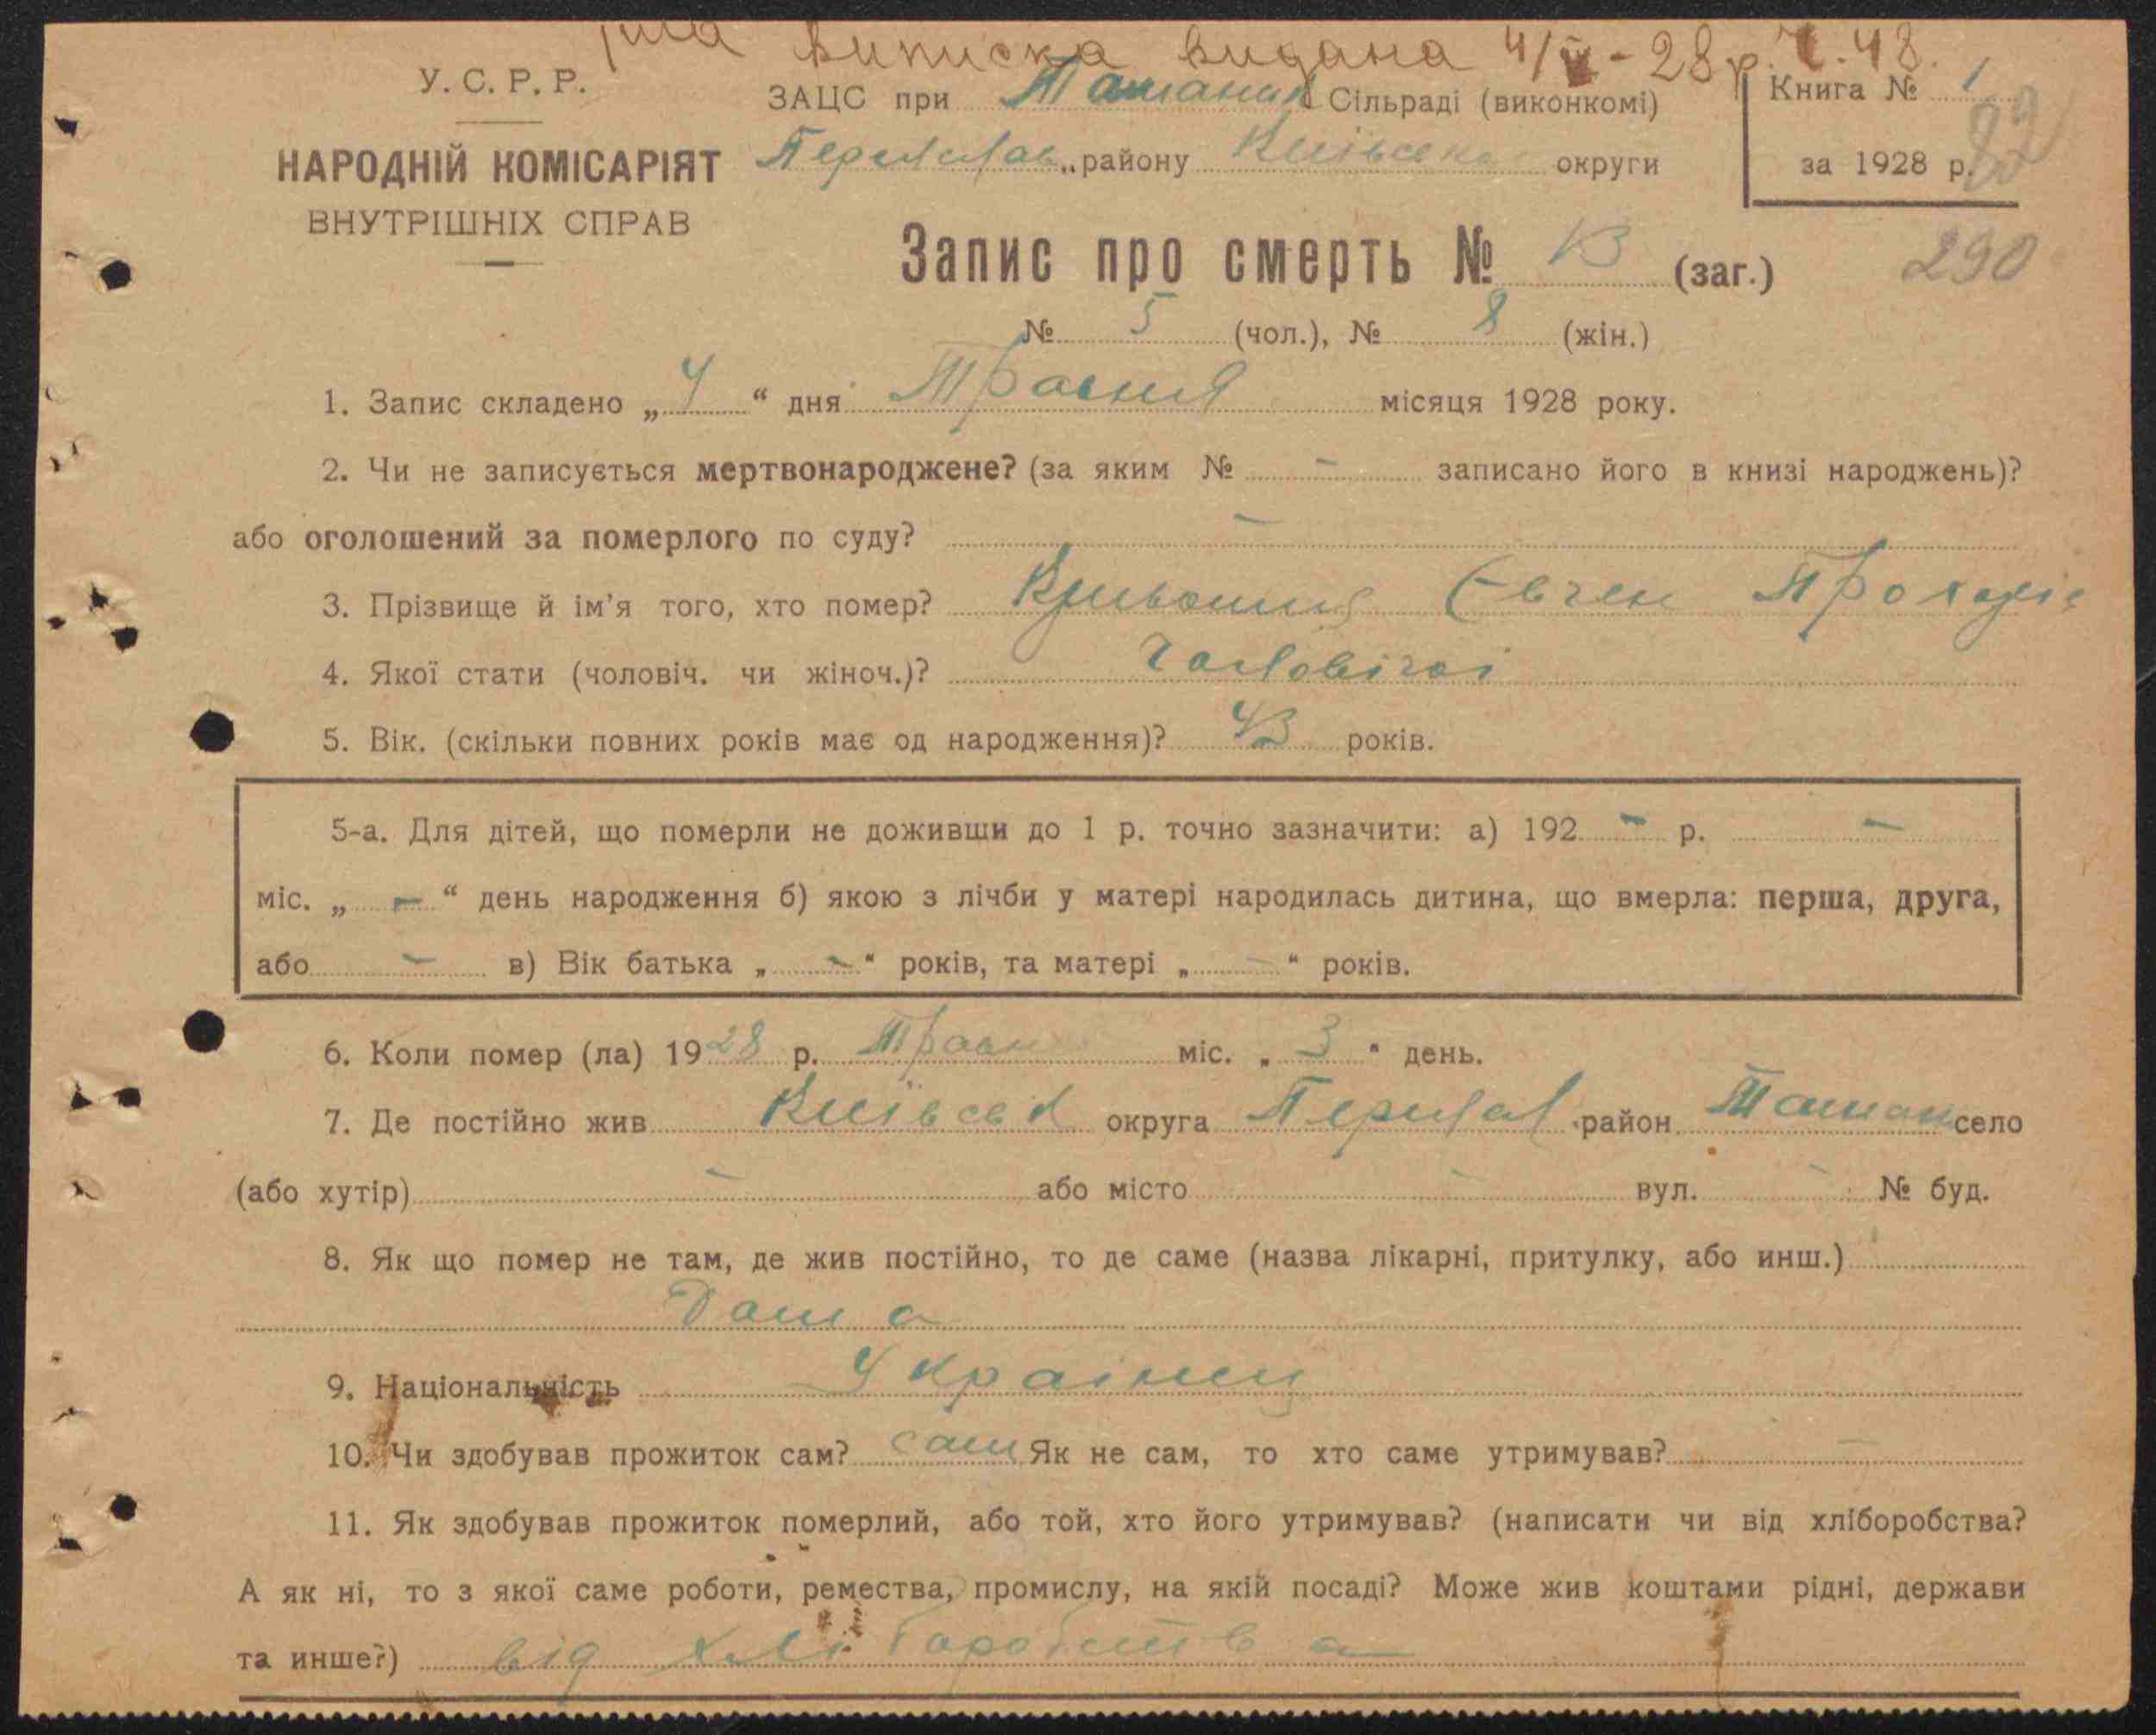 виписка видана 4/V-28 р. Ч. 48.
У. С. Р. Р.
НАРОДНІЙ КОМІСАРІЯТ
ВНУТРІШНІХ СПРАВ
ЗАЦС при Ташанськ Сільраді (виконкомі)
Переяслав району Київська округи
Книга № 1
за 1928 р.
Запис про смерть № 13 (заг.)
290
№ 5 (чол.), № 8 (жін.)
1. Запис складено „ 4 “ дня Травня місяця 1928 року.
2. Чи не записується мертвонароджене? (за яким № - записано його в книзі народжень)?
або оголошений за померлого по суду? -
3. Прізвище й ім'я того, хто помер? Євген
4. Якої стати (чоловіч. чи жіноч.)? Чоловічої
5. Вік. (скільки повних років має од народження)? 43 років.
5-а. Для дітей, що померли не доживши до 1 р. точно зазначити: а) 192 - р. -
міс. „ - “ день народження б) якою з лічби у матері народилась дитина, що вмерла: перша, друга,
або - в) Вік батька „ - “ років, та матері „ - “ років.
6. Коли помер (ла) 1928 р. Травн міс. „ 3 “ день.
7. Де постійно жив Київськ округа район Ташан село
(або хутір) - або місто - вул. - № буд.
8. Як що помер не там, де жив постійно, то де саме (назва лікарні, притулку, або инш.)
Дома
9. Національність Українец
10. Чи здобував прожиток сам? сам Як не сам, то хто саме утримував? -
11. Як здобував прожиток померлий, або той, хто його утримував? (написати чи від хліборобства?
А як ні, то з якої саме роботи, ремества, промислу, на якій посаді? Може жив коштами рідні, держави
та инше?) від хліборобства